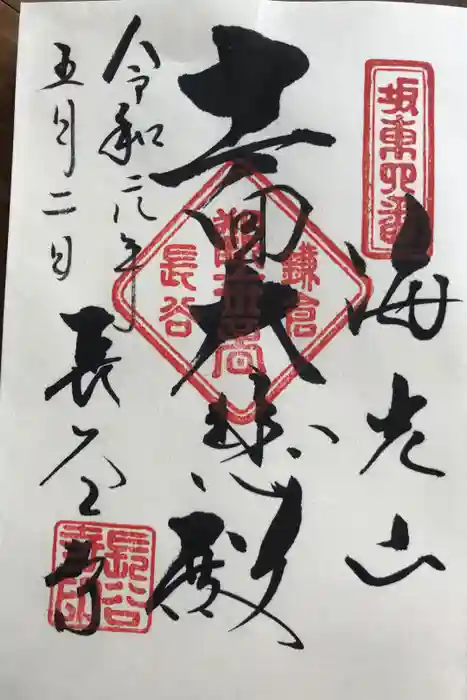 坂東四番
海光山
十一面大悲殿
鎌倉
長谷
令和元年
五月二日
長谷寺
長谷
寺印